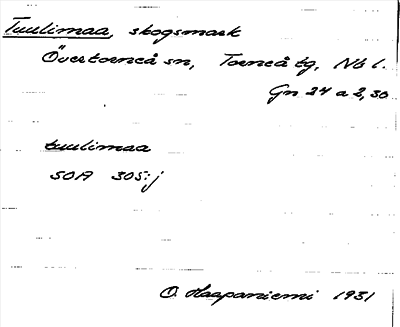 Tuulimaa, skogsmark
Övertorneå sn, Torneå tg, Nb l.
Gn 24 a 2,30
tuulimaa
SOA 305:j
O. Haapaniemi 1931